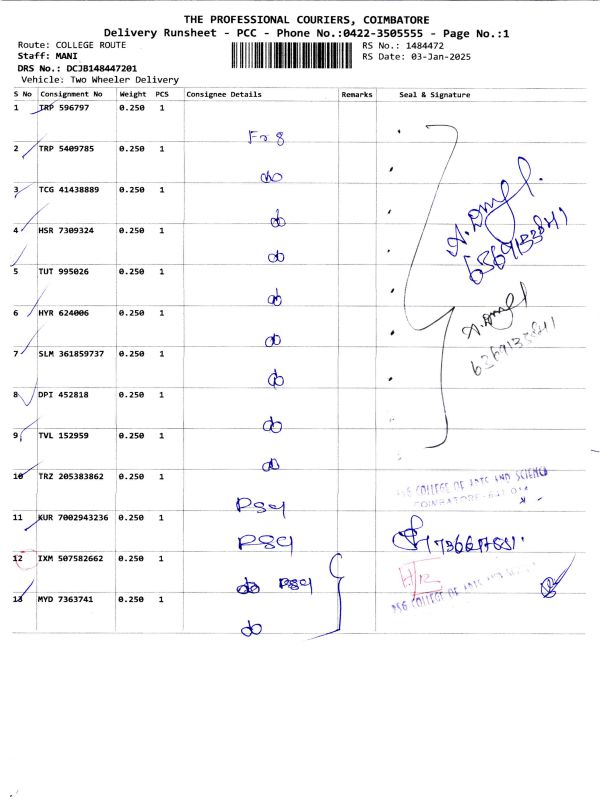 THE PROFESSIONAL COURIERS, COIMBATORE
Delivery Runsheet - PCC - Phone No.:0422-3505555 - Page No.:1
Route: COLLEGE ROUTE RS No.: 1484472
Staff: MANI RS Date: 03-Jan-2025
DRS No.: DCJB148447201
Vehicle: Two Wheeler Delivery
S No Consignment No Weight PCS Consignee Details Remarks Seal & Signature
1 TRP 596797 0.250 1
2 TRP 5409785 0.250 1
do
3 TCG 41438889 0.250 1
do
4 HSR 7309324 0.250 1
do
5 TUT 995026 0.250 1
do
6 HYR 624006 0.250 1
do
7 SLM 361859737 0.250 1
do
8 DPI 452818 0.250 1
do
9 TVL 152959 0.250 1
do
10 TRZ 205383862 0.250 1
PSG COLLEGE OF ARTS AND SCIENCE
COIMBATORE - 641 014
PSG
11 KUR 7002943236 0.250 1
PSG
12 IXM 507582662 0.250 1
do PSG
13 MYD 7363741 0.250 1
PSG COLLEGE OF ARTS AND
do